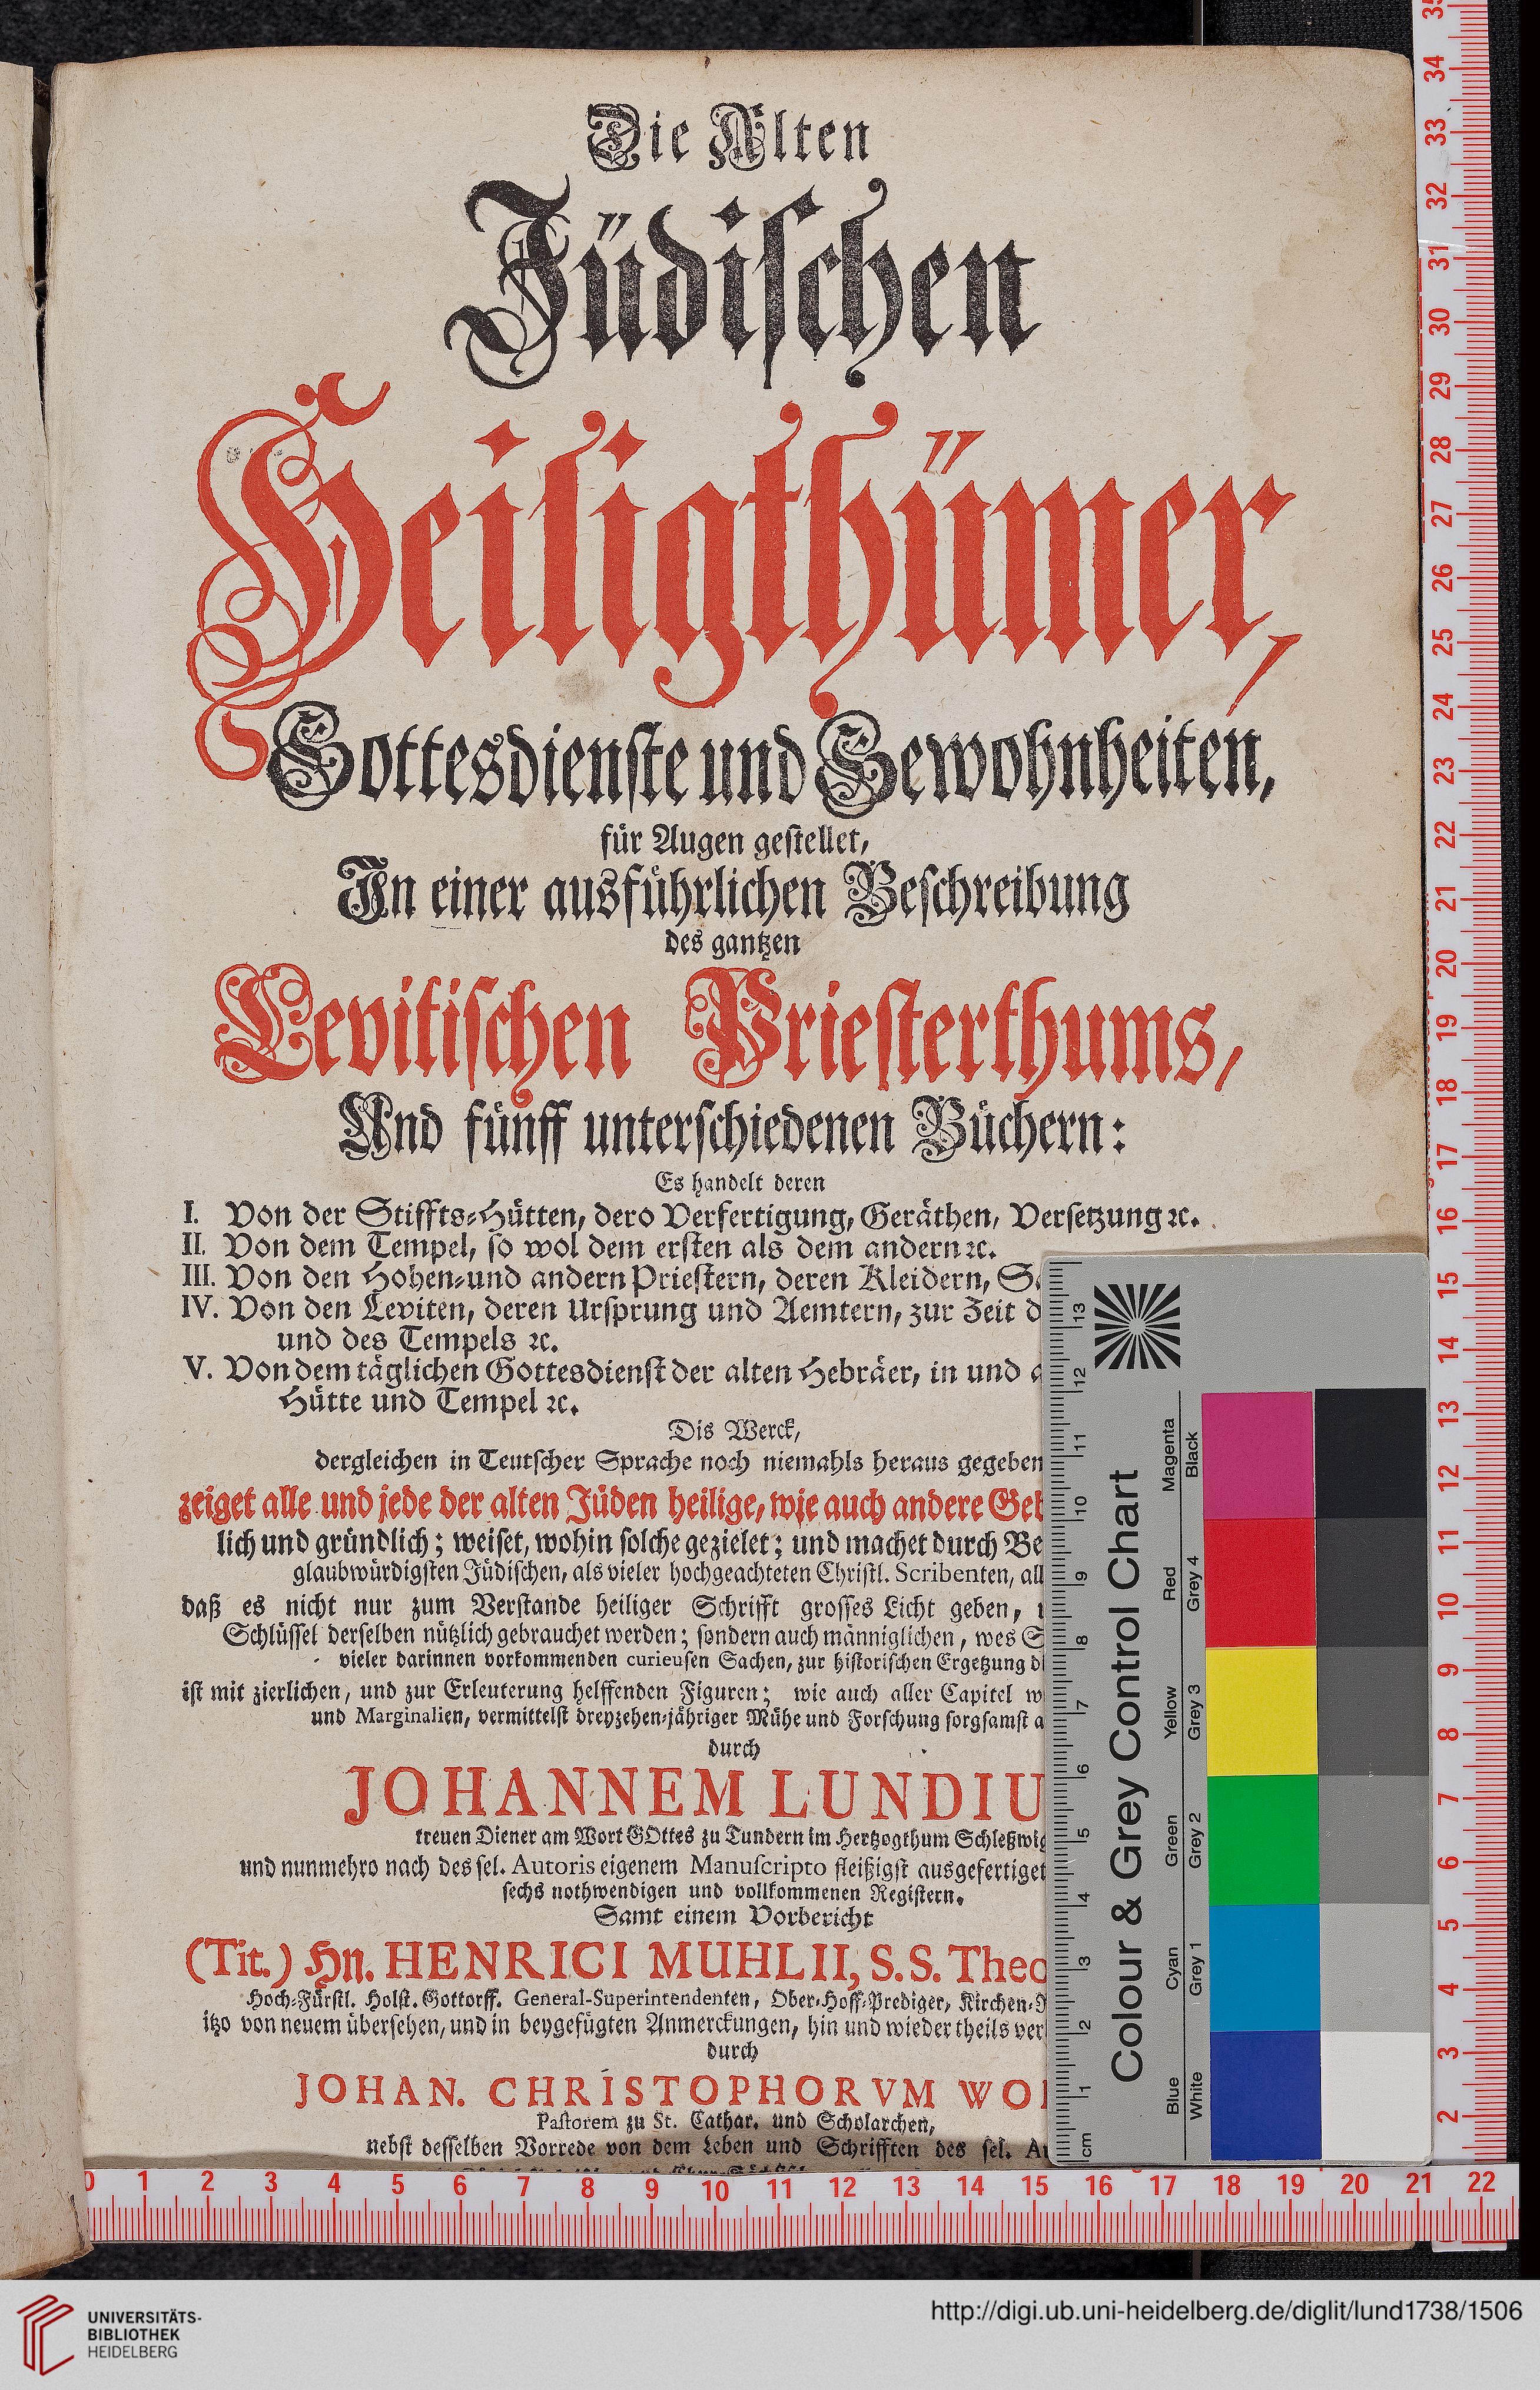 Die Alten
Jüdischen
Heiligthümer,
Gottesdienste und Gewohnheiten,
für Augen gestellet,
In einer ausführlichen Beschreibung
des gantzen
Levitischen Priesterthums,
Und fünff unterschiedenen Büchern:
Es handelt deren
I. Von der Stiffts-Hütten, dero Verfertigung, Geräthen, Versetzung ꝛc.
II. Von dem Tempel, so wol dem ersten als dem andern ꝛc.
III. Von den Hohen-und andern Priestern, deren Kleidern,
IV. Von den Leviten, deren Ursprung und Aemtern, zur Zeit
und des Tempels ꝛc.
V. Von dem täglichen Gottesdienst der alten Hebräer, in und
Hütte und Tempel ꝛc.
Dis Werck,
dergleichen in Teutscher Sprache noch niemahls heraus gegeben
zeiget alle und jede der alten Jüden heilige, wie auch andere
lich und gründlich; weiset, wohin solche gezielet; und machet durch
glaubwürdigsten Jüdischen, als vieler hochgeachteten Christl. Scribenten,
daß es nicht nur zum Verstande heiliger Schrifft grosses Licht geben,
Schlüssel derselben nützlich gebrauchet werden; sondern auch männiglichen, wes
vieler darinnen vorkommenden curieusen Sachen, zur historischen Ergetzung
ist mit zierlichen, und zur Erleuterung helffenden Figuren; wie auch aller Capitel
und Marginalien, vermittelst dreyzehen-jähriger Mühe und Forschung sorgsamst
durch
JOHANNEM LUNDIU
treuen Diener am Wort GOttes zu Tundern im Hertzogthum Schleßwig
und nunmehro nach des sel. Autoris eigenem Manuscripto fleißigst ausgefertiget
sechs nothwendigen und vollkommenen Registern.
Samt einem Vorbericht
(Tit.) Hn. HENRICI MUHLII, S.S. Theo
Hoch-Fürstl. Holst. Gottorff. General-Superintendenten, Ober-Hoff-Prediger, Kirchen-
itzo von neuem übersehen, und in beygefügten Anmerckungen, hin und wieder theils
durch
JOHAN. CHRISTOPHORVM WO
Pastorem zu St. Cathar. und Scholarchen,
nebst desselben Vorrede von dem Leben und Schrifften des sel.
Colour & Grey Control Chart
Magenta Red Yellow Green Cyan Blue
Black Grey 4 Grey 3 Grey 2 Grey 1 White
cm 1 2 3 4 5 6 7 8 9 10 11 12 13
35 34 33 32 31 30 29 28 27 26 25 24 23 22 21 20 19 18 17 16 15 14 13 12 11 10 9 8 7 6 5 4 3 2
0 1 2 3 4 5 6 7 8 9 10 11 12 13 14 15 16 17 18 19 20 21 22
UNIVERSITÄTS-
BIBLIOTHEK
HEIDELBERG
http://digi.ub.uni-heidelberg.de/diglit/lund1738/1506